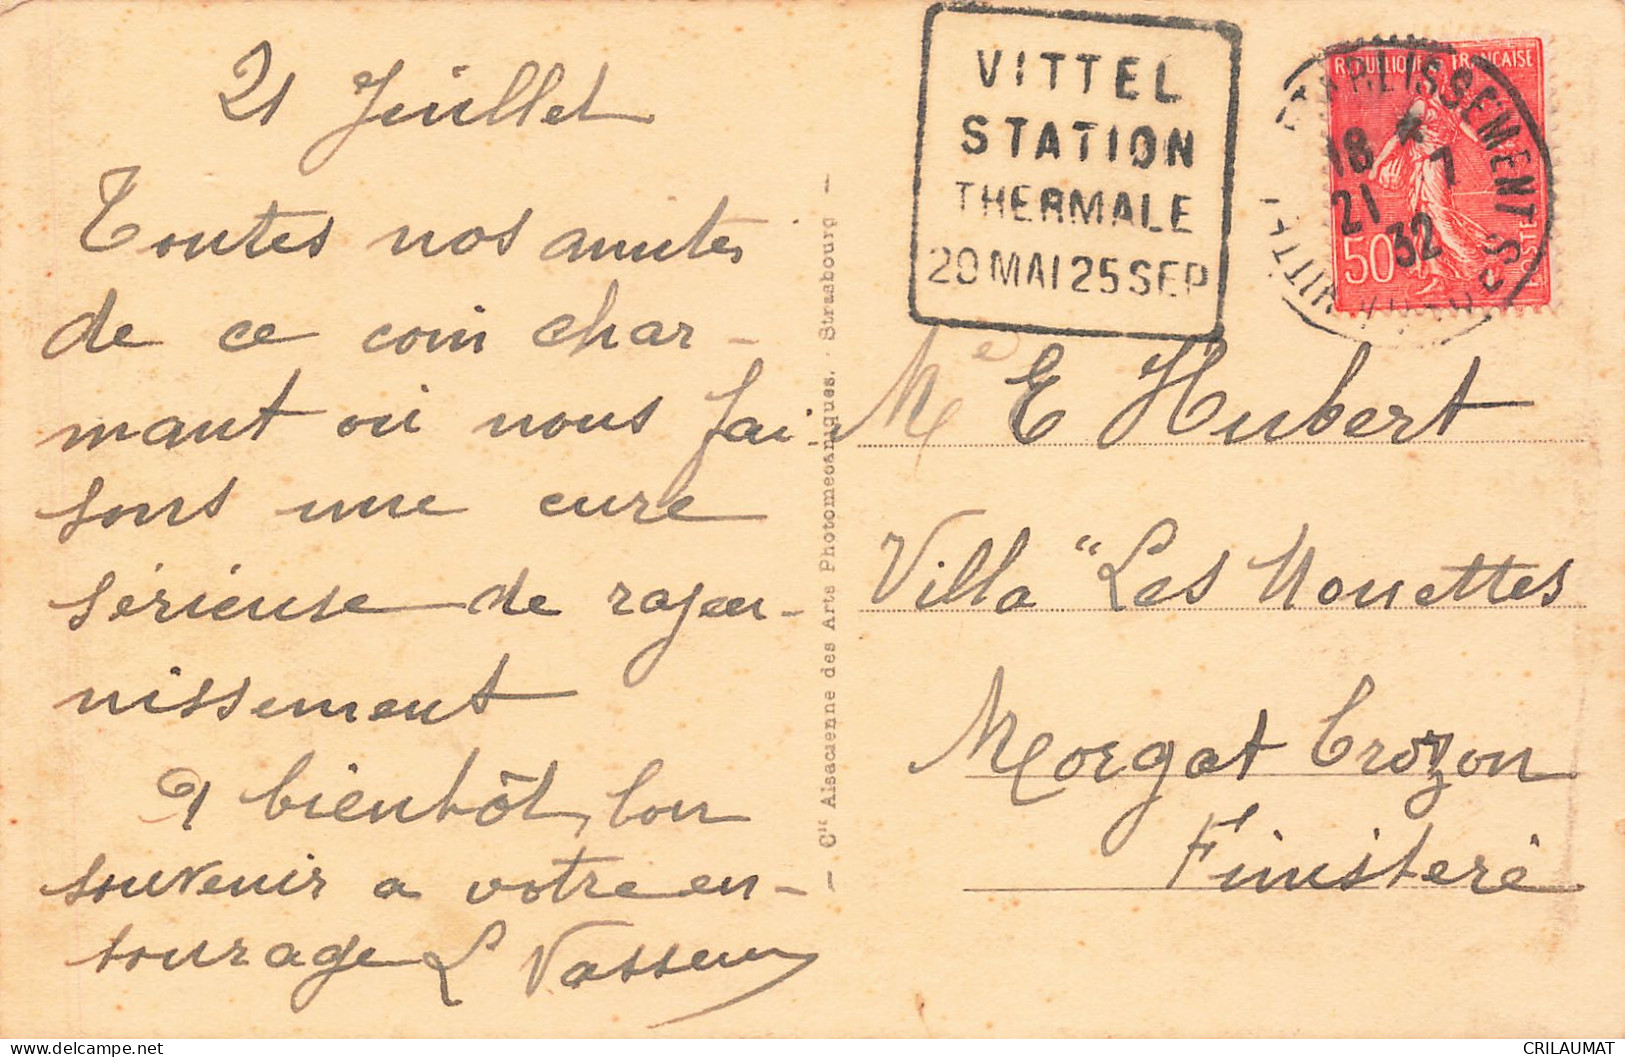 21 Juillet
Toutes nos amités
de ce coin char-
mant où nous fai
sons une cure
sérieuse de rajeu-
nissement
A bientôt, bon
souvenir a votre en-
tourage L Vasseur
- Cie Alsacienne des Arts Photomecaniques. - Strasbourg -
VITTEL
STATION
THERMALE
20 MAI 25 SEP
REPUBLIQUE FRANÇAISE
ETABLISSEMENT
18 * 7
21 32
50
POSTES
VITTEL
Me E Hubert
Villa "Les Mouettes
Morgat Crozon
Finisteré
CRILAUMAT